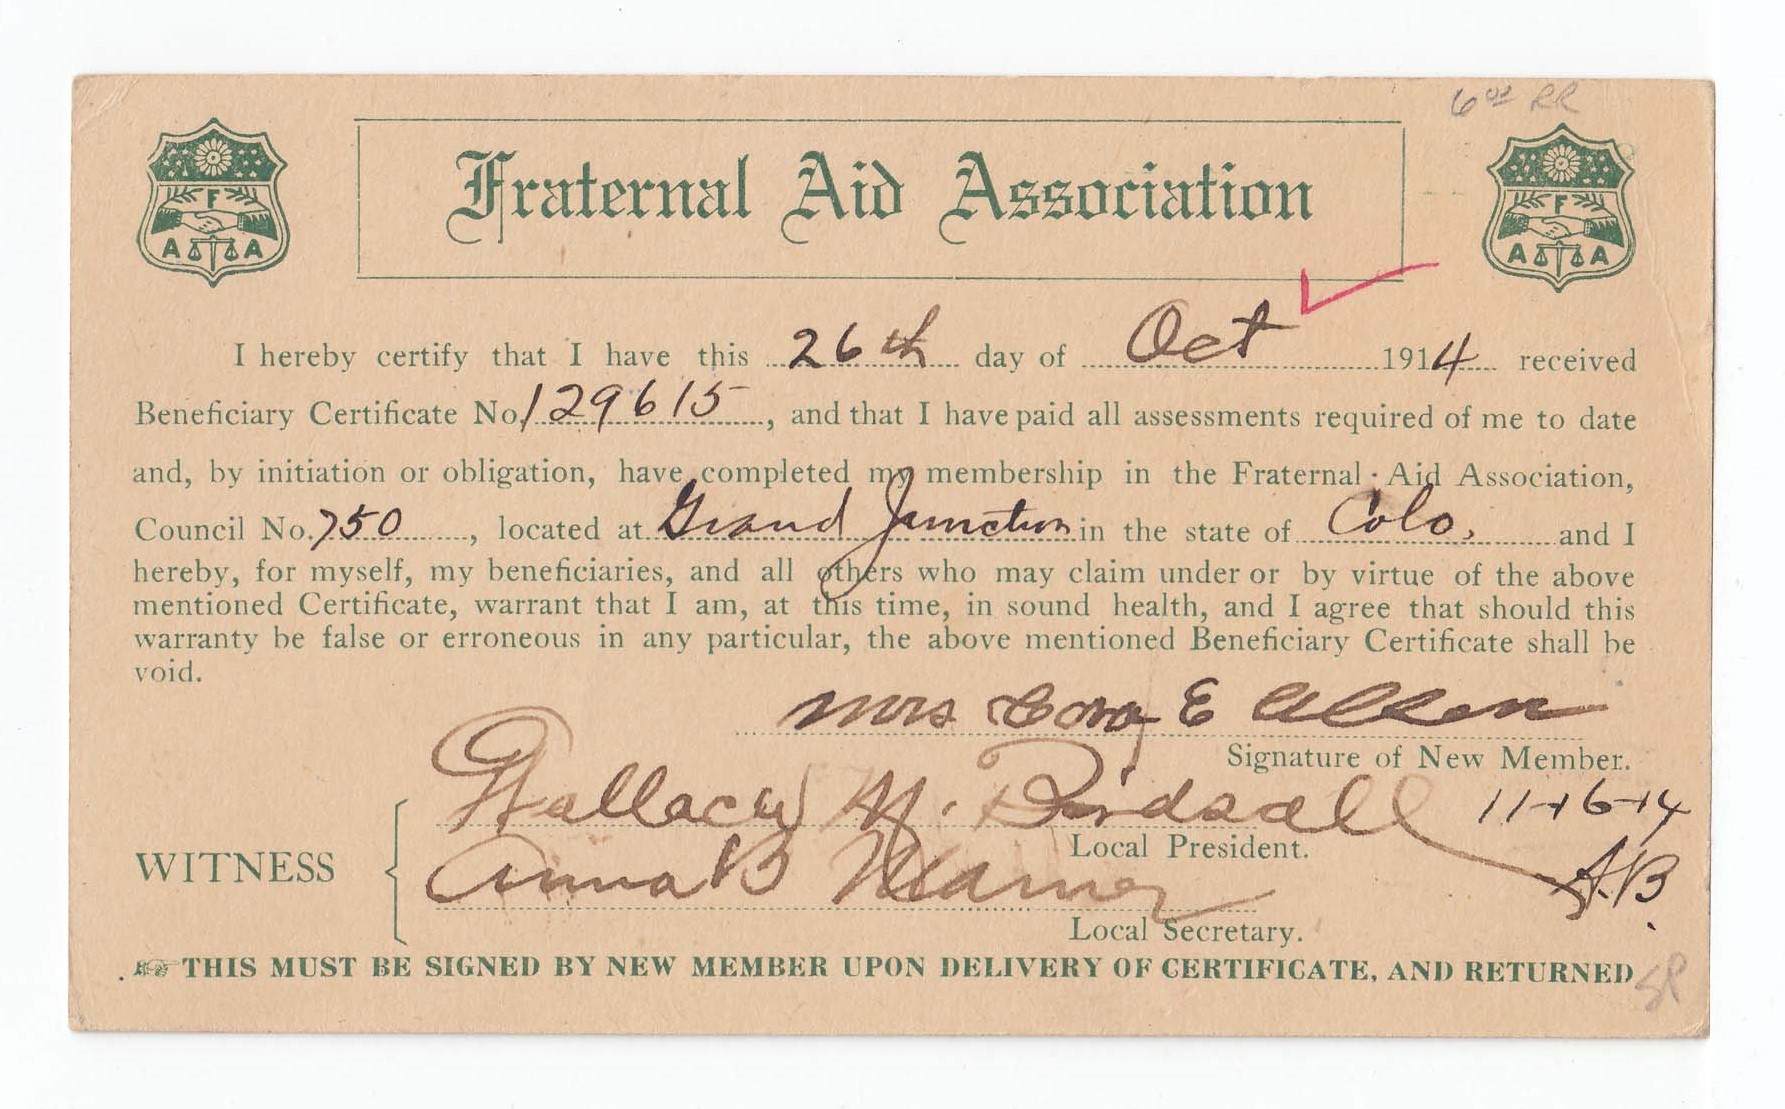 6 RR
Fraternal Aid Association
F
A A
F
A A
I hereby certify that I have this 26th day of Oct 1914 received
Beneficiary Certificate No. 129615, and that I have paid all assessments required of me to date
and, by initiation or obligation, have completed my membership in the Fraternal Aid Association,
Council No. 750, located at Grand Junction in the state of Colo, and I
hereby, for myself, my beneficiaries, and all others who may claim under or by virtue of the above
mentioned Certificate, warrant that I am, at this time, in sound health, and I agree that should this
warranty be false or erroneous in any particular, the above mentioned Beneficiary Certificate shall be
void.
Mrs Cora E Allen
Signature of New Member.
Wallace M. Birdsall 11-16-14
Local President.
WITNESS
Anna B A.B.
Local Secretary.
THIS MUST BE SIGNED BY NEW MEMBER UPON DELIVERY OF CERTIFICATE, AND RETURNED